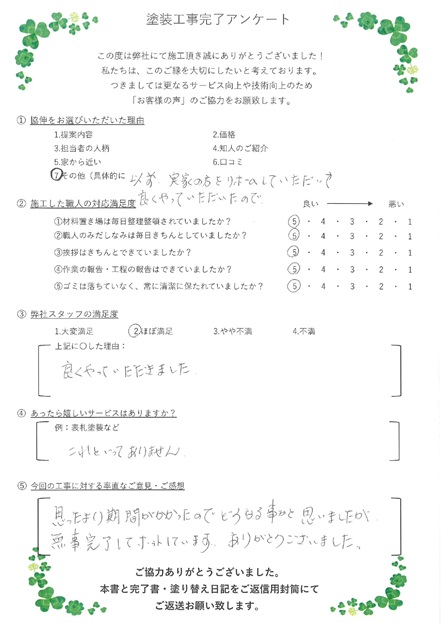 塗装工事完了アンケート
この度は弊社にて施工頂き誠にありがとうございました！
私たちは、このご縁を大切にしたいと考えております。
つきましては更なるサービス向上や技術向上のため
「お客様の声」のご協力をお願致します。
① 協伸をお選びいただいた理由
1.提案内容 2.価格
3.担当者の人柄 4.知人のご紹介
5.家から近い 6.口コミ
7.その他（具体的に 以前、実家の方をリホームしていただいて
良くやっていただいたので、
② 施工した職人の対応満足度 良い 悪い
①材料置き場は毎日整理整頓されていましたか？ 5 ・ 4 ・ 3 ・ 2 ・ 1
②職人のみだしなみは毎日きちんとしていましたか？ 5 ・ 4 ・ 3 ・ 2 ・ 1
③挨拶はきちんとできていましたか？ 5 ・ 4 ・ 3 ・ 2 ・ 1
④作業の報告・工程の報告はできていましたか？ 5 ・ 4 ・ 3 ・ 2 ・ 1
⑤ゴミは落ちていなく、常に清潔に保たれていましたか？ 5 ・ 4 ・ 3 ・ 2 ・ 1
③ 弊社スタッフの満足度
1.大変満足 2.ほぼ満足 3.やや不満 4.不満
上記に〇した理由：
良くやっていただきました。
④ あったら嬉しいサービスはありますか？
例：表札塗装など
これといってありません。
⑤ 今回の工事に対する率直なご意見・ご感想
思ったより期間がかかったのでどうなる事かと思いましたが、
無事完了してホットしています。ありがとうございました。
ご協力ありがとうございました。
本書と完了書・塗り替え日記をご返信用封筒にて
ご返送お願い致します。